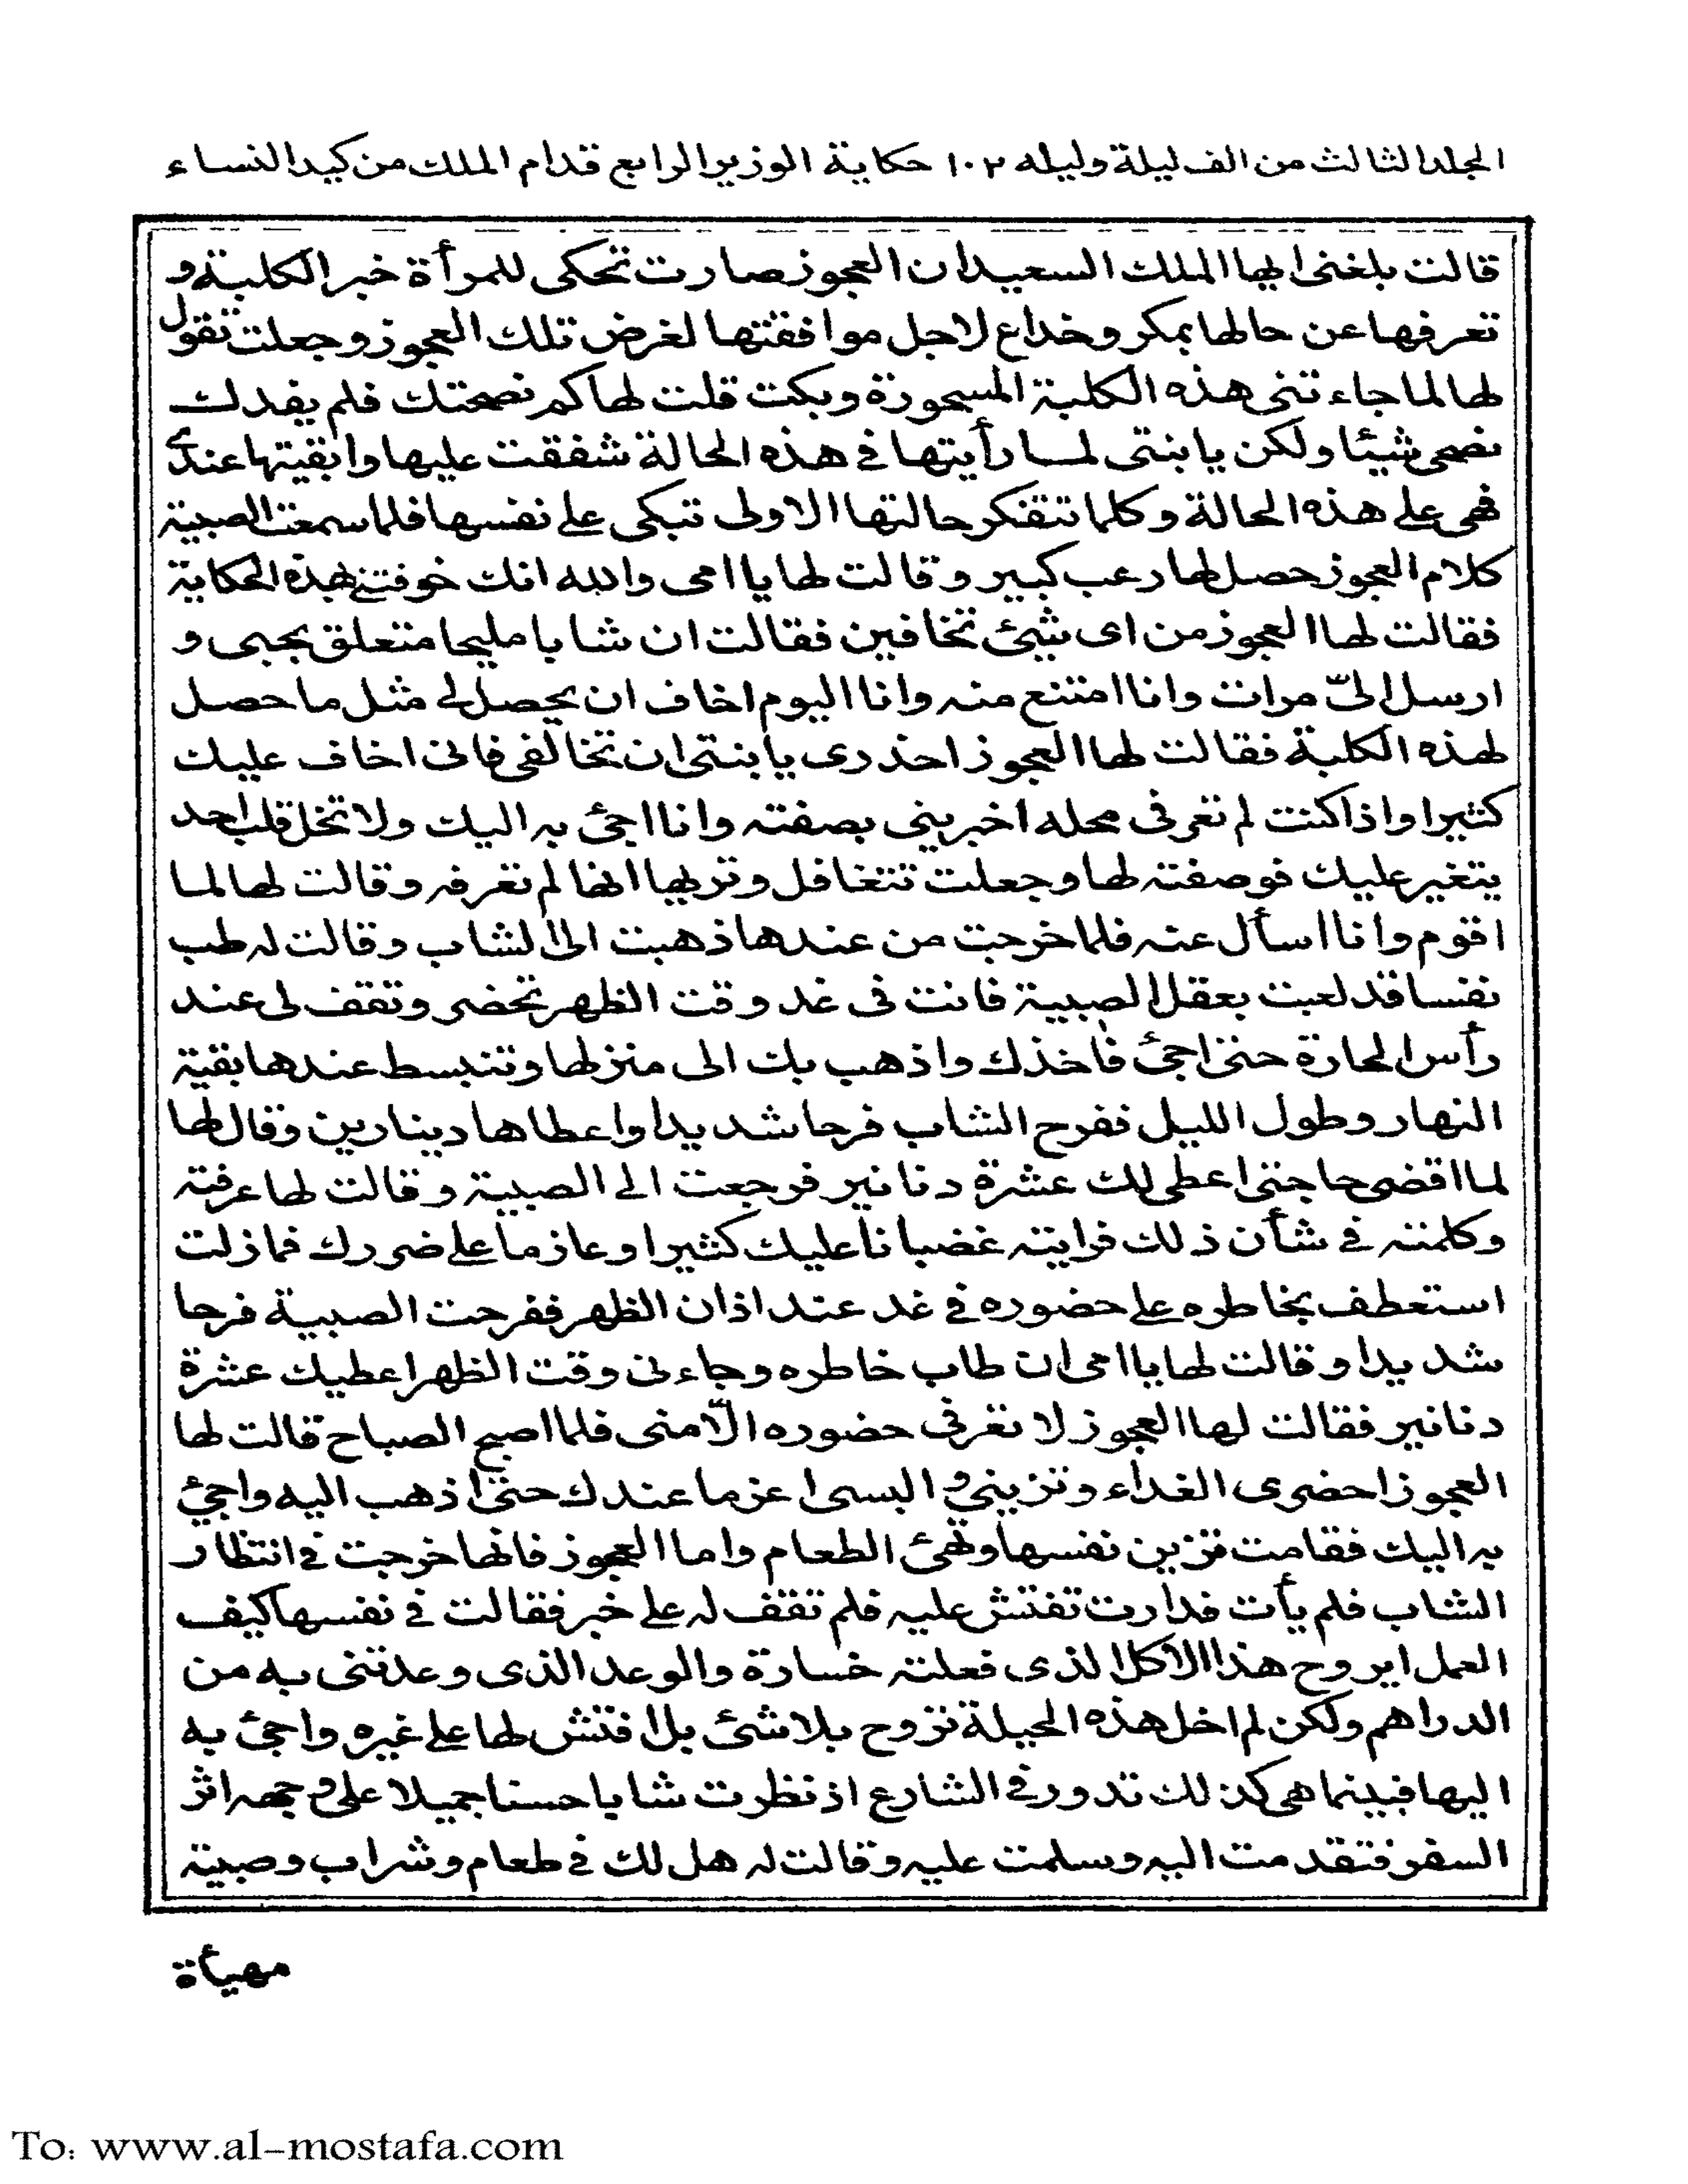 المجلد الثالث من الف ليلة وليله ١٠٢ حكاية الوزير الرابع قدام الملك من كيد النساء
قالت بلغنى ايها الملك السعيد ان العجوز صارت تحكى للمرأة خبر الكلبة و
تعرفها عن حالها بمكر وخداع لاجل موافقتها لغرض تلك العجوز وجعلت تقول
لها لما جاء تنى هذه الكلبة المسحورة وبكت قلت لها كم نصحتك فلم يفدك
نصحى شيئا ولكن يا بنتى لما رأيتها فى هذه الحالة شفقت عليها وابقيتها عندى
فهى على هذه الحالة وكلما تتفكر حالتها الاولى تبكى على نفسها فلما سمعت الصبية
كلام العجوز حصل لها رعب كبير وقالت لها يا امى والله انك خوفتنى بهذه الحكاية
فقالت لها العجوز من اى شيئ تخافين فقالت ان شابا مليحا متعلق بحبى و
ارسل الىّ مرات وانا امتنع منه وانا اليوم اخاف ان يحصل لى مثل ما حصل
لهذه الكلبة فقالت لها العجوز احذرى يا بنتى ان تخالفى فانى اخاف عليك
كثيرا واذا كنت لم تعرفى محله اخبرينى بصفته وانا اجئ به اليك ولا تخلى قلب احد
يتغير عليك فوصفته لها وجعلت تتغافل وتريها انها لم تعرفه وقالت لها لما
اقوم وانا اسأل عنه فلما خرجت من عندها ذهبت الى الشاب وقالت له طب
نفسا قد لعبت بعقل الصبية فانت فى غد وقت الظهر تحضر وتقف لى عند
رأس الحارة حتى اجئ فاخذك واذهب بك الى منزلها وتنبسط عندها بقية
النهار وطول الليل ففرح الشاب فرحا شديدا واعطاها دينارين وقال لها
لما اقضى حاجتى اعطى لك عشرة دنانير فرجعت الى الصبية وقالت لها عرفته
وكلمته فى شأن ذلك فرايته غضبانا عليك كثيرا وعازما على ضررك فما زلت
استعطف بخاطره على حضوره فى غد عند اذان الظهر ففرحت الصبية فرحا
شديدا وقالت لها يا امى ان طاب خاطره وجاءنى وقت الظهر اعطيك عشرة
دنانير فقالت لها العجوز لا تعرفى حضوره الّا منى فلما اصبح الصباح قالت لها
العجوز احضرى الغداء وتزينى و البسى اعز ما عندك حتى اذهب اليه واجئ
به اليك فقامت تزين نفسها وتهئ الطعام واما العجوز فانها خرجت فى انتظار
الشاب فلم يأت فدارت تفتش عليه فلم تقف له على خبر فقالت فى نفسها كيف
العمل ايروح هذا الاكل الذى فعلته خسارة والوعد الذى وعدتنى به من
الدراهم ولكن لم اخل هذه الحيلة تروح بلا شئ بل افتش لها على غيره واجئ به
اليها فبينما هى كذلك تدور فى الشارع اذ نظرت شابا حسنا جميلا على وجهه اثر
السفر فتقدمت اليه وسلمت عليه وقالت له هل لك فى طعام وشراب وصبية
مهيأة
To: www.al-mostafa.com